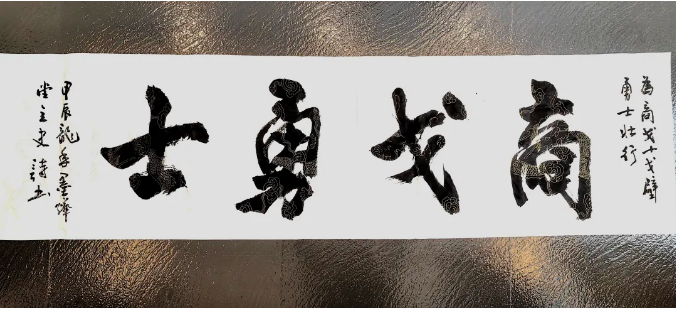 為商戈十戈壁
勇士壮行
商戈勇士
甲辰龍年墨
堂主史诗书